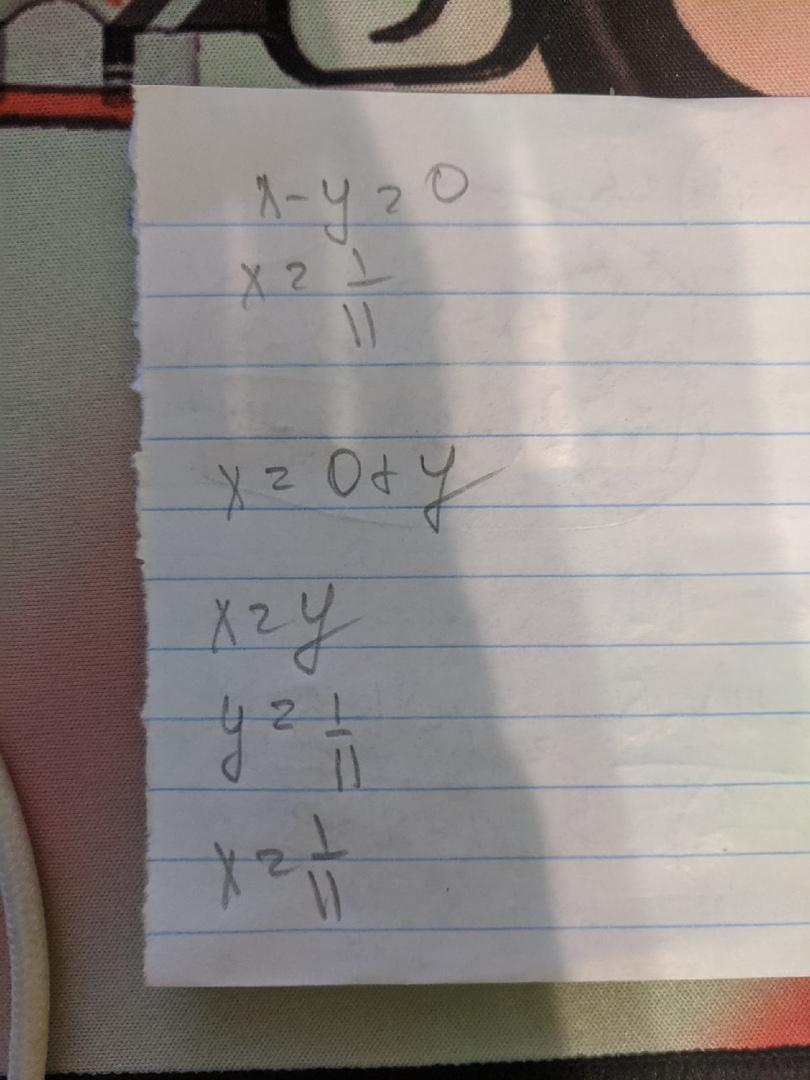 x-y=0
x=1/11
x=0+y
x=y
y=1/11
x=1/11